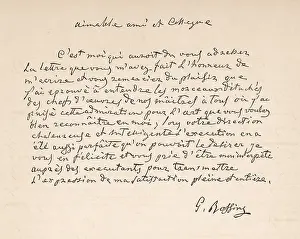 Aimable ami et Collegue
C'est moi qui aurait du vous adresser
la lettre que vous m'avez fait l'honneur de
m'ecrire et vous remercier du plaisir que
j'ai eprouvé à entendre les morceaux détachés
des chefs d'œuvres de nos maitres à tous où j'ai
puisé cette admiration pour l'art que vous voulez
bien reconnaitre en moi; sous votre direction
chaleureuse et intelligente l'execution en a
été aussi parfaite qu'on pouvait le désirer je
vous en felicite et vous prie d'être mon interprète
auprès des executants pour transmettre
l'expression de ma satisfaction pleine et entière.
G. Rossini